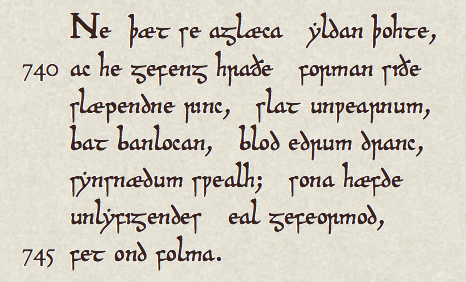 Ne þæt se aglæca ẏldan þohte,
740 ac he gefeng hraðe forman siðe
slæpendne rinc, slat unƿearnum,
bat banlocan, blod edrum dranc,
sẏnsnædum sƿealh; sona hæfde
unlẏfigendes eal gefeormod,
745 fet ond folma.